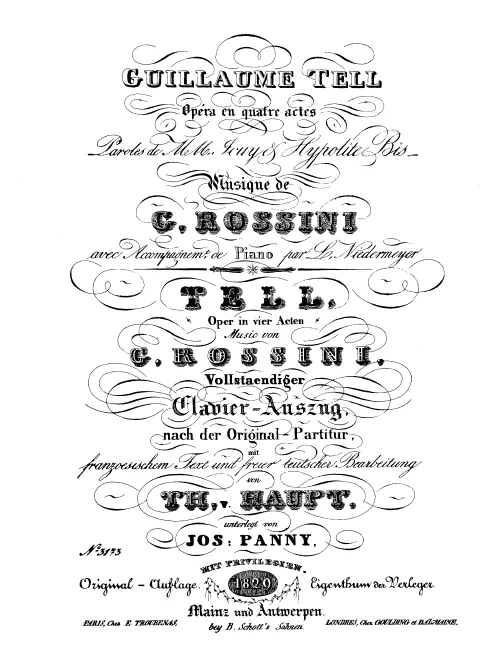 GUILLAUME TELL
Opéra en quatre actes
Paroles de M.M. Jouy & Hypolite Bis
Musique de
G. ROSSINI
avec Accompagnemt. de Piano par L. Niedermeyer
TELL,
Oper in vier Acten
Music von
G. ROSSINI,
Vollstaendiger
Clavier-Auszug,
nach der Original-Partitur,
mit
franzoesischem Text und freier teutscher Bearbeitung
von
TH. v. HAUPT,
unterlegt von
JOS: PANNY,
No. 3173
MIT PRIVILEGIEN.
Original - Auflage. 1829 Eigenthum der Verleger.
Mainz und Antwerpen.
bey B. Schott's Söhnen.
PARIS, Chez E. TROUPENAS, LONDRES, Chez GOULDING et DALMAINE.